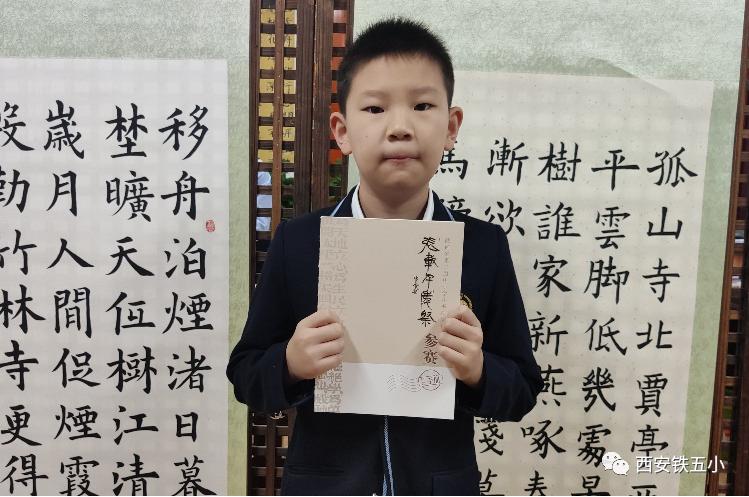 孤山寺北賈亭
平雲腳低幾處
樹誰家新燕啄春
漸欲
移舟泊煙渚日暮
埜曠天低樹江清
歲月人間促煙霞
勤竹林寺更得
天地立心
西安铁五小